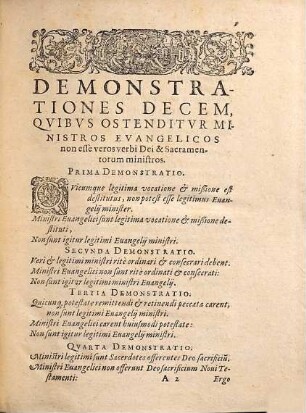 DEMONSTRA-
TIONES DECEM,
QVIBVS OSTENDITVR MI-
NISTROS EVANGELICOS
non esse veros verbi Dei & Sacramen-
totum ministros.
PRIMA DEMONSTRATIO.
QVicumque legitima vocatione & missione est
destitutus, non potest esse legitimus Euan-
gelij minister.
Ministri Euangelici sunt legitima vocatione & missione de-
stituti,
Non sunt igitur legitimi Euangelij ministri.
SECVNDA DEMONSTRATIO.
Veri & legitimi ministri ritè ordinari & consecrari debent.
Ministri Euangelici non sunt ritè ordinati & consecrati:
Non sunt igitur legitimi ministri Euangelij.
TERTIA DEMONSTRATIO.
Quicunq, potestate remittendi & retinendi peccata carent,
non sunt legitimi Euangelij ministri.
Ministri Euangelici carent huiusmodi potestate:
Non sunt igitur legitimi Euangelij ministri.
QVARTA DEMONSTRATIO.
Ministri legitimi sunt Sacerdotes offerentes Deo sacrificiũ.
Ministri Euangelici non offerunt Deo sacrificium Noui Te-
stamenti: A 2 Ergo